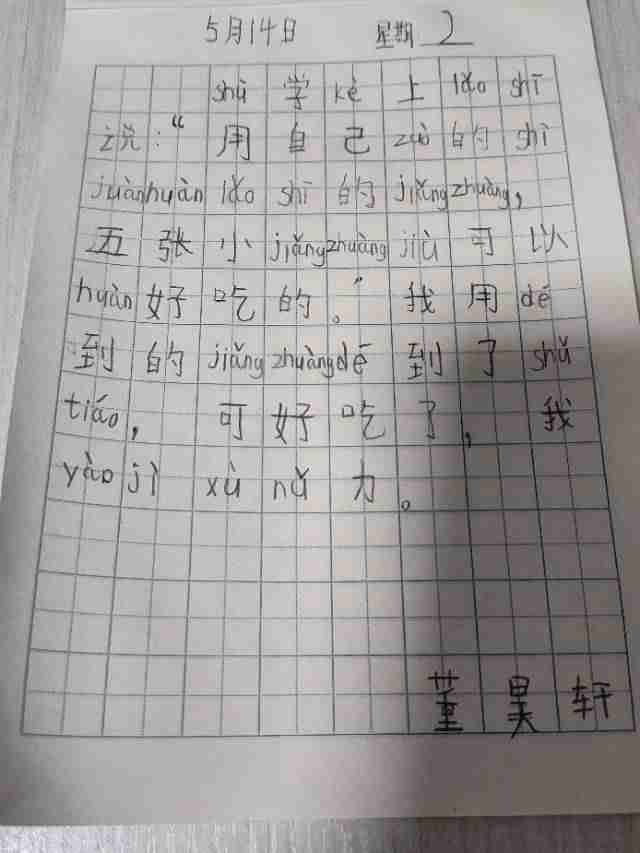 5月14日 星期 2
shù 学 kè 上 lǎo shī
说:“用自己 zuò 的 shì
juàn huàn lǎo shī 的 jiǎng zhuàng,
五张小 jiǎng zhuàng jiù 可以
huàn 好吃的。”我用 dé
到的 jiǎng zhuàng dé 到了 shǔ
tiáo, 可好吃了, 我
yào jì xù nǔ 力。
董昊轩